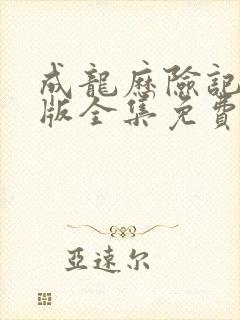 成龍歷險記
版全集免費
亞速尔